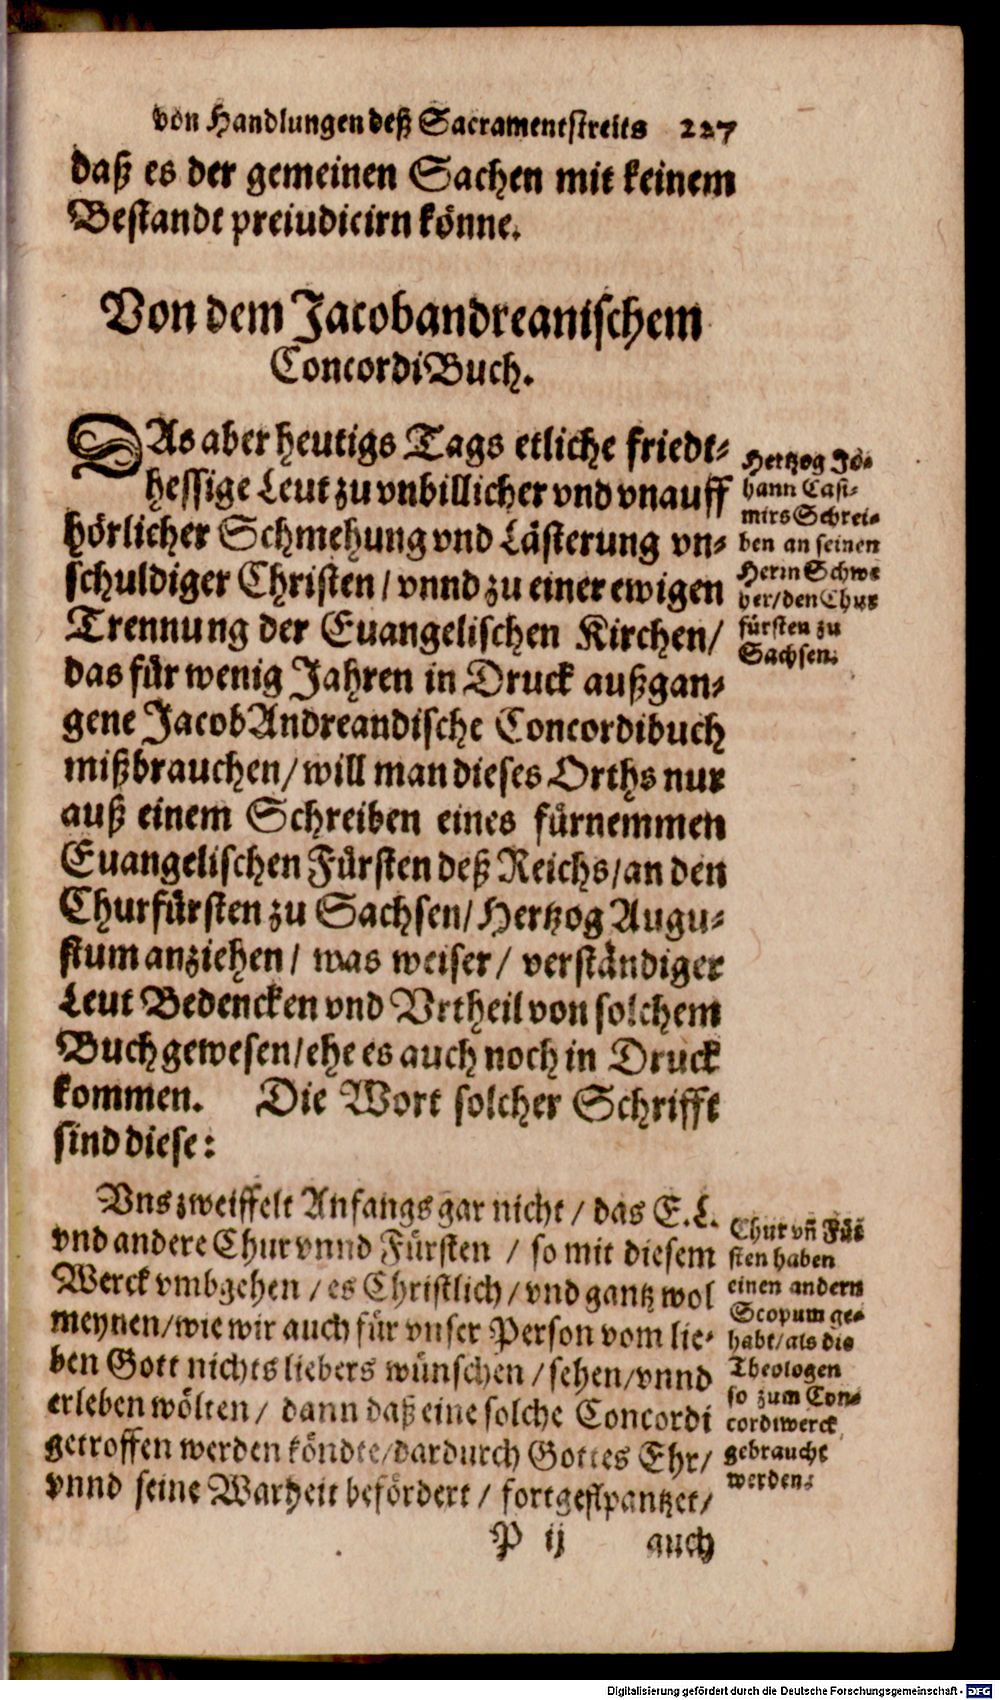 von Handlungen deß Sacramentstreits 227
daß es der gemeinen Sachen mit keinem
Bestandt preiudicirn könne.
Von dem Jacobandreanischem
ConcordiBuch.
DAs aber heutigs Tags etliche friedt-
hessige Leut zu vnbillicher vnd vnauff
hörlicher Schmehung vnd Lästerung vn-
schuldiger Christen / vnnd zu einer ewigen
Trennung der Euangelischen Kirchen /
das für wenig Jahren in Druck außgan-
gene JacobAndreandische Concordibuch
mißbrauchen / will man dieses Orths nur
auß einem Schreiben eines fürnemmen
Euangelischen Fürsten deß Reichs / an den
Churfürsten zu Sachsen / Hertzog Augu-
stum anziehen / was weiser / verständiger
Leut Bedencken vnd Vrtheil von solchem
Buch gewesen / ehe es auch noch in Druck
kommen. Die Wort solcher Schrifft
sind diese:
Hertzog Jo-
hann Casi-
mirs Schrei-
ben an seinen
Herrn Schwe
her / den Chur
fürsten zu
Sachsen.
Vns zweiffelt Anfangs gar nicht / das E. L.
vnd andere Chur vnnd Fürsten / so mit diesem
Werck vmbgehen / es Christlich / vnd gantz wol
meynen / wie wir auch für vnser Person vom lie-
ben Gott nichts liebers wünschen / sehen / vnnd
erleben wölten / dann daß eine solche Concordi
getroffen werden köndte / dardurch Gottes Ehr /
vnnd seine Warheit befördert / fortgeflpantzet /
Chur vñ Für
sten haben
einen andern
Scopum ge-
habt / als die
Theologen
so zum Con-
cordiwerck
gebraucht
werden.
P ij auch
Digitalisierung gefördert durch die Deutsche Forschungsgemeinschaft - DFG